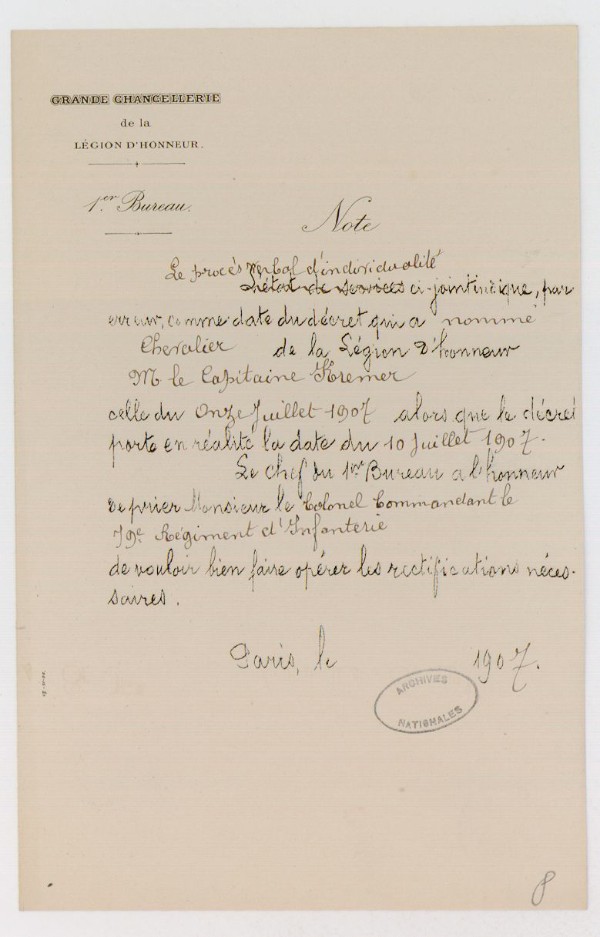 GRANDE CHANCELLERIE
de la
LÉGION D'HONNEUR.
1er Bureau.
Note
Le procès verbal d'individualité
L'état de services ci-joint indique, par
erreur, comme date du décret qui a nommé
Chevalier de la Légion d'honneur
M. le Capitaine Kremer
celle du Onze Juillet 1907 alors que le décret
porte en réalité la date du 10 Juillet 1907.
Le Chef du 1er Bureau a l'honneur
de prier Monsieur le Colonel Commandant le
79e Régiment d'Infanterie
de vouloir bien faire opérer les rectifications néces-
saires.
Paris, le 1907.
ARCHIVES
NATIONALES
8